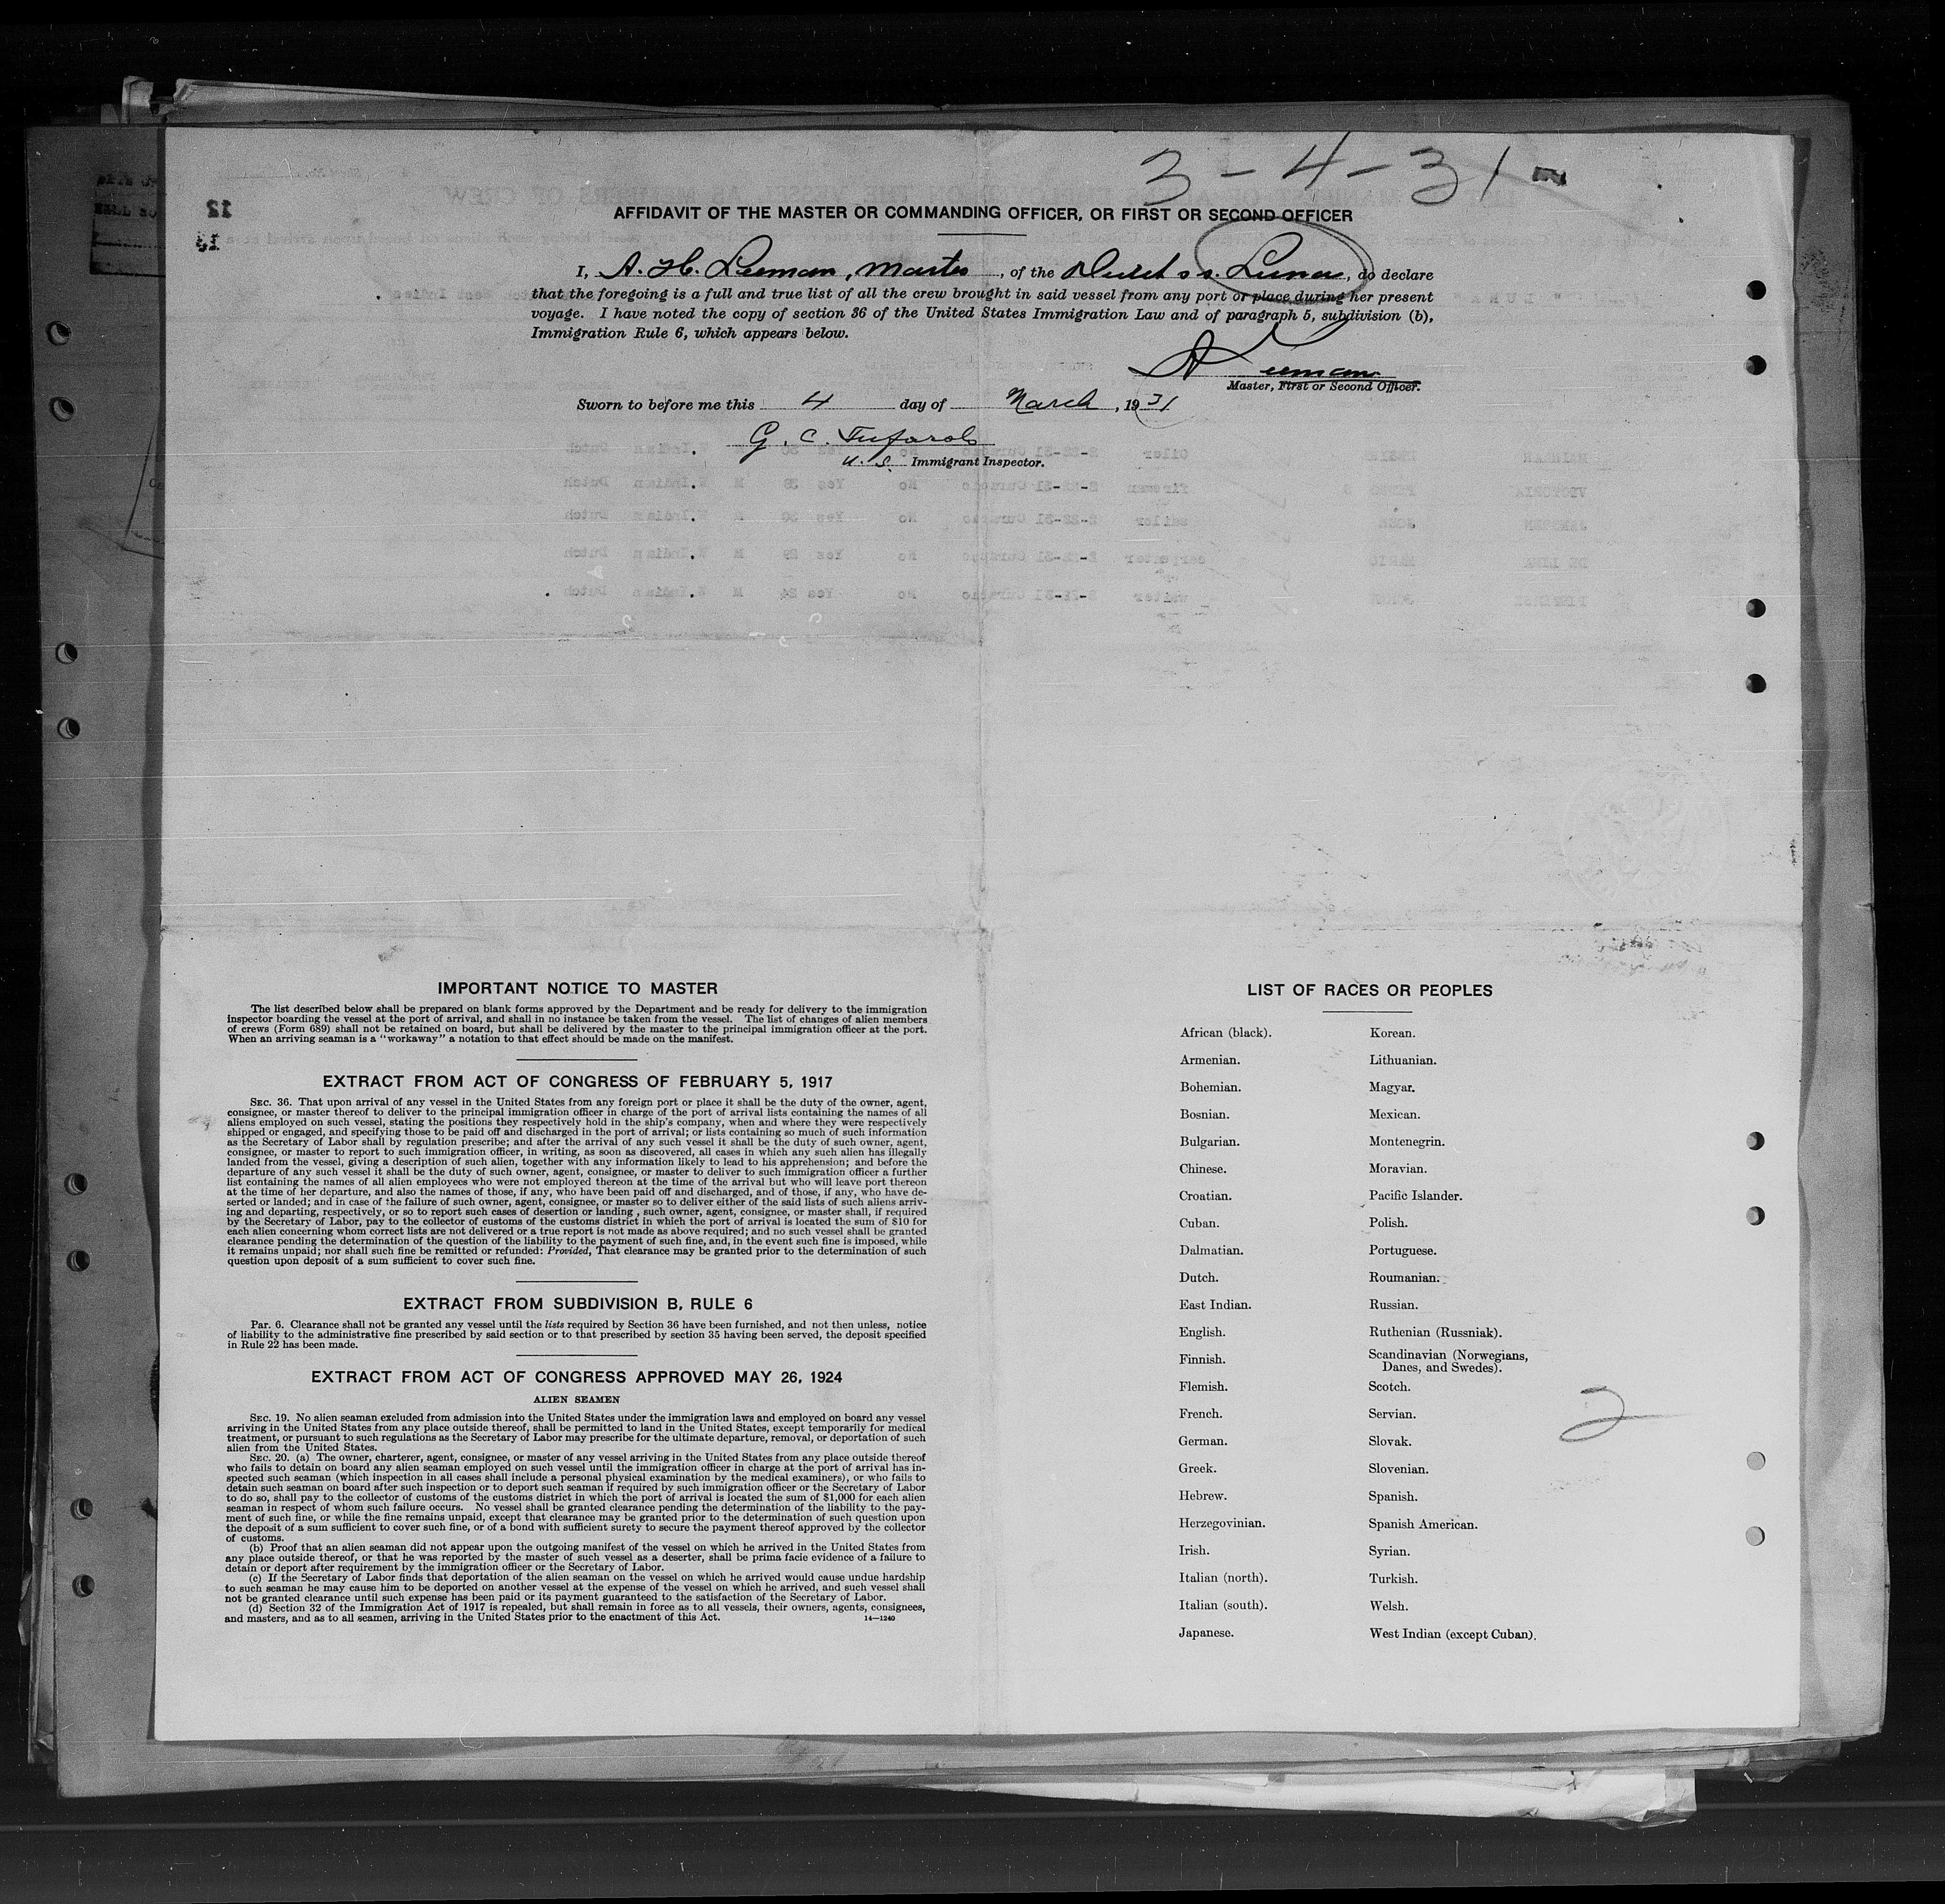 3-4-31
AFFIDAVIT OF THE MASTER OR COMMANDING OFFICER, OR FIRST OR SECOND OFFICER
I, A. H. Leeman, Master, of the Dutch s s. Luna, do declare
that the foregoing is a full and true list of all the crew brought in said vessel from any port or place during her present
voyage. I have noted the copy of section 36 of the United States Immigration Law and of paragraph 5, subdivision (b),
Immigration Rule 6, which appears below.
A Leeman
Master, First or Second Officer.
Sworn to before me this 4 day of March, 1931
G. C.
U. S. Immigrant Inspector.
IMPORTANT NOTICE TO MASTER
The list described below shall be prepared on blank forms approved by the Department and be ready for delivery to the immigration
inspector boarding the vessel at the port of arrival, and shall in no instance be taken from the vessel. The list of changes of alien members
of crews (Form 689) shall not be retained on board, but shall be delivered by the master to the principal immigration officer at the port.
When an arriving seaman is a "workaway" a notation to that effect should be made on the manifest.
EXTRACT FROM ACT OF CONGRESS OF FEBRUARY 5, 1917
SEC. 36. That upon arrival of any vessel in the United States from any foreign port or place it shall be the duty of the owner, agent,
consignee, or master thereof to deliver to the principal immigration officer in charge of the port of arrival lists containing the names of all
aliens employed on such vessel, stating the positions they respectively hold in the ship's company, when and where they were respectively
shipped or engaged, and specifying those to be paid off and discharged in the port of arrival; or lists containing so much of such information
as the Secretary of Labor shall by regulation prescribe; and after the arrival of any such vessel it shall be the duty of such owner, agent,
consignee, or master to report to such immigration officer, in writing, as soon as discovered, all cases in which any such alien has illegally
landed from the vessel, giving a description of such alien, together with any information likely to lead to his apprehension; and before the
departure of any such vessel it shall be the duty of such owner, agent, consignee, or master to deliver to such immigration officer a further
list containing the names of all alien employees who were not employed thereon at the time of the arrival but who will leave port thereon
at the time of her departure, and also the names of those, if any, who have been paid off and discharged, and of those, if any, who have de-
serted or landed; and in case of the failure of such owner, agent, consignee, or master so to deliver either of the said lists of such aliens arriv-
ing and departing, respectively, or so to report such cases of desertion or landing , such owner, agent, consignee, or master shall, if required
by the Secretary of Labor, pay to the collector of customs of the customs district in which the port of arrival is located the sum of $10 for
each alien concerning whom correct lists are not delivered or a true report is not made as above required; and no such vessel shall be granted
clearance pending the determination of the question of the liability to the payment of such fine, and, in the event such fine is imposed, while
it remains unpaid; nor shall such fine be remitted or refunded: Provided, That clearance may be granted prior to the determination of such
question upon deposit of a sum sufficient to cover such fine.
EXTRACT FROM SUBDIVISION B, RULE 6
Par. 6. Clearance shall not be granted any vessel until the lists required by Section 36 have been furnished, and not then unless, notice
of liability to the administrative fine prescribed by said section or to that prescribed by section 35 having been served, the deposit specified
in Rule 22 has been made.
EXTRACT FROM ACT OF CONGRESS APPROVED MAY 26, 1924
ALIEN SEAMEN
SEC. 19. No alien seaman excluded from admission into the United States under the immigration laws and employed on board any vessel
arriving in the United States from any place outside thereof, shall be permitted to land in the United States, except temporarily for medical
treatment, or pursuant to such regulations as the Secretary of Labor may prescribe for the ultimate departure, removal, or deportation of such
alien from the United States.
SEC. 20. (a) The owner, charterer, agent, consignee, or master of any vessel arriving in the United States from any place outside thereof
who fails to detain on board any alien seaman employed on such vessel until the immigration officer in charge at the port of arrival has in-
spected such seaman (which inspection in all cases shall include a personal physical examination by the medical examiners), or who fails to
detain such seaman on board after such inspection or to deport such seaman if required by such immigration officer or the Secretary of Labor
to do so, shall pay to the collector of customs of the customs district in which the port of arrival is located the sum of $1,000 for each alien
seaman in respect of whom such failure occurs. No vessel shall be granted clearance pending the determination of the liability to the pay-
ment of such fine, or while the fine remains unpaid, except that clearance may be granted prior to the determination of such question upon
the deposit of a sum sufficient to cover such fine, or of a bond with sufficient surety to secure the payment thereof approved by the collector
of customs.
(b) Proof that an alien seaman did not appear upon the outgoing manifest of the vessel on which he arrived in the United States from
any place outside thereof, or that he was reported by the master of such vessel as a deserter, shall be prima facie evidence of a failure to
detain or deport after requirement by the immigration officer or the Secretary of Labor.
(c) If the Secretary of Labor finds that deportation of the alien seaman on the vessel on which he arrived would cause undue hardship
to such seaman he may cause him to be deported on another vessel at the expense of the vessel on which he arrived, and such vessel shall
not be granted clearance until such expense has been paid or its payment guaranteed to the satisfaction of the Secretary of Labor.
(d) Section 32 of the Immigration Act of 1917 is repealed, but shall remain in force as to all vessels, their owners, agents, consignees,
and masters, and as to all seamen, arriving in the United States prior to the enactment of this Act.
14—1240
LIST OF RACES OR PEOPLES
African (black).
Armenian.
Bohemian.
Bosnian.
Bulgarian.
Chinese.
Croatian.
Cuban.
Dalmatian.
Dutch.
East Indian.
English.
Finnish.
Flemish.
French.
German.
Greek.
Hebrew.
Herzegovinian.
Irish.
Italian (north).
Italian (south).
Japanese.
Korean.
Lithuanian.
Magyar.
Mexican.
Montenegrin.
Moravian.
Pacific Islander.
Polish.
Portuguese.
Roumanian.
Russian.
Ruthenian (Russniak).
Scandinavian (Norwegians,
Danes, and Swedes).
Scotch.
Servian.
Slovak.
Slovenian.
Spanish.
Spanish American.
Syrian.
Turkish.
Welsh.
West Indian (except Cuban).
2